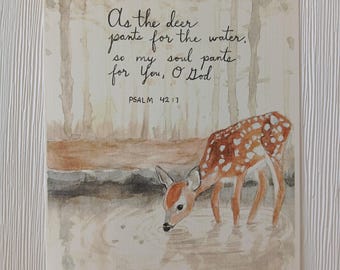 As the deer
pants for the water,
so my soul pants
for You, O God
PSALM 42:1